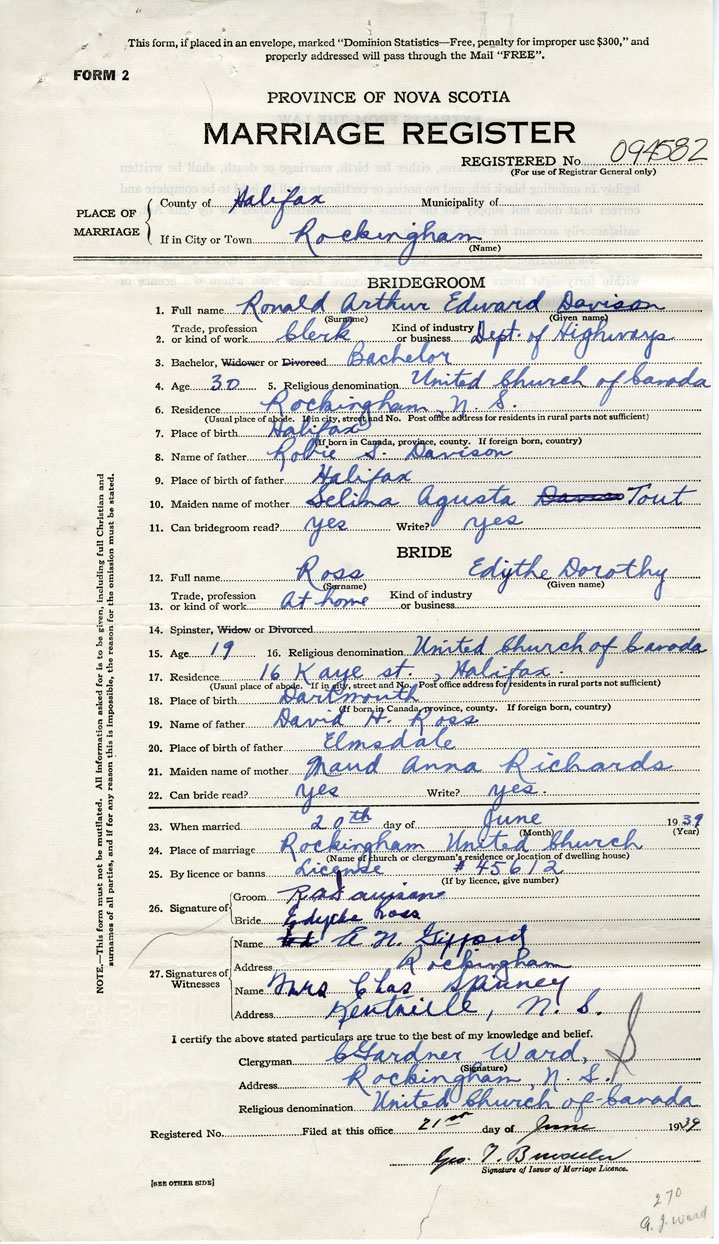 This form, if placed in an envelope, marked "Dominion Statistics—Free, penalty for improper use $300," and
properly addressed will pass through the Mail "FREE".
FORM 2
PROVINCE OF NOVA SCOTIA
MARRIAGE REGISTER
REGISTERED No. 094582
(For use of Registrar General only)
PLACE OF MARRIAGE
County of Halifax Municipality of
If in City or Town Rockingham
(Name)
BRIDEGROOM
1. Full name Ronald Arthur Edward Davison
(Surname) (Given name)
2. Trade, profession or kind of work Clerk Kind of industry or business Dept. of Highways
3. Bachelor, Widower or Divorced Bachelor
4. Age 30 5. Religious denomination United Church of Canada
6. Residence Rockingham, N. S.
(Usual place of abode. If in city, street and No. Post office address for residents in rural parts not sufficient)
7. Place of birth Halifax
(If born in Canada, province, county. If foreign born, country)
8. Name of father Robie S. Davison
9. Place of birth of father Halifax
10. Maiden name of mother Selina Agusta Tout
11. Can bridegroom read? yes Write? yes
BRIDE
12. Full name Ross Edythe Dorothy
(Surname) (Given name)
13. Trade, profession or kind of work At home Kind of industry or business
14. Spinster, Widow or Divorced
15. Age 19 16. Religious denomination United Church of Canada
17. Residence 16 Kaye st., Halifax.
(Usual place of abode. If in city, street and No. Post office address for residents in rural parts not sufficient)
18. Place of birth Dartmouth
(If born in Canada, province, county. If foreign born, country)
19. Name of father David H. Ross
20. Place of birth of father Elmsdale
21. Maiden name of mother Maud Anna Richards
22. Can bride read? yes Write? yes.
23. When married 20th day of June 1939
(Month) (Year)
24. Place of marriage Rockingham United Church
(Name of church or clergyman's residence or location of dwelling house)
25. By licence or banns License # 45612
(If by licence, give number)
26. Signature of
Groom R A Davison
Bride Edythe Ross
27. Signatures of Witnesses
Name E. N. Gifford
Address Rockingham
Name Mrs Chas Spinney
Address Kentville, N. S.
I certify the above stated particulars are true to the best of my knowledge and belief.
Clergyman C Gardner Ward,
(Signature)
Address Rockingham, N. S.
Religious denomination United Church of Canada
Registered No. Filed at this office 21st day of June 1939
Geo. T.
Signature of Issuer of Marriage Licence.
[SEE OTHER SIDE]
270
NOTE.—This form must not be mutilated. All information asked for is to be given, including full Christian and
surnames of all parties, and if for any reason this is impossible, the reason for the omission must be stated.